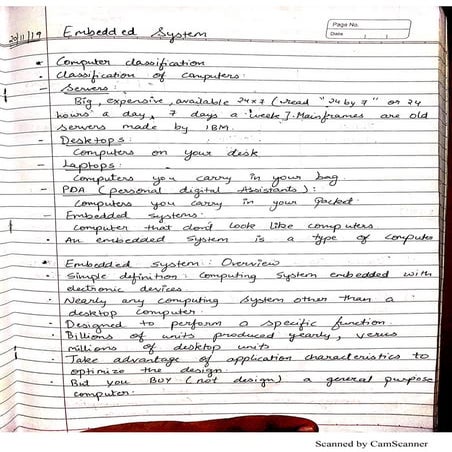 20/11/19
Embedded System
Page No.
Date
• Computer classification
• Classification of computers:
– Servers:
Big, expensive, available 24x7 (read "24 by 7" or 24
hours a day, 7 days a week). Mainframes are old
servers made by IBM.
– Desktops:
Computers on your desk
– Laptops:
Computers you carry in your bag.
– PDA (personal digital Assistants):
Computers you carry in your Pocket
– Embedded systems:
Computer that don't look like computers
• An embedded system is a type of computer
• Embedded system: Overview
• Simple definition: Computing System embedded with
electronic devices.
• Nearly any computing system other than a
desktop computer.
• Designed to perform a specific function.
• Billions of units produced yearly, vesus
millions of desktop units
• Take advantage of application characteristics to
optimize the design.
• But you BUY (not design) a general purpose
computer.
Scanned by CamScanner